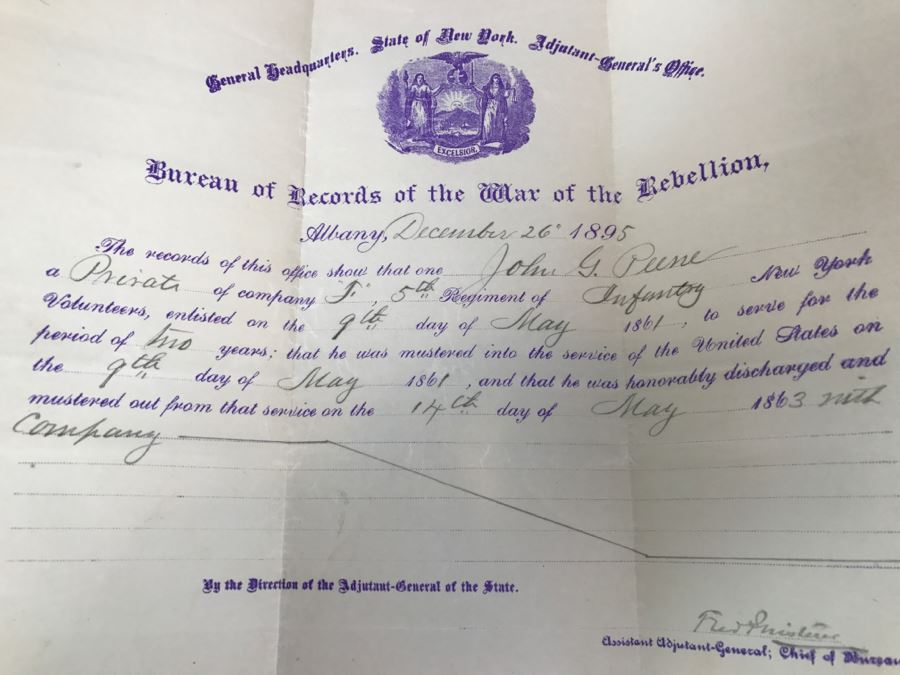 General Headquarters. State of New York. Adjutant-General's Office.
EXCELSIOR.
Bureau of Records of the War of the Rebellion,
Albany, December 26" 1895
The records of this office show that one John G. Peene
a Private of company "F", 5th Regiment of Infantry New York
Volunteers, enlisted on the 9th day of May 1861, to serve for the
period of two years; that he was mustered into the service of the United States on
the 9th day of May 1861, and that he was honorably discharged and
mustered out from that service on the 14th day of May 1863 with
Company
By the Direction of the Adjutant-General of the State.
Assistant Adjutant-General; Chief of Bureau